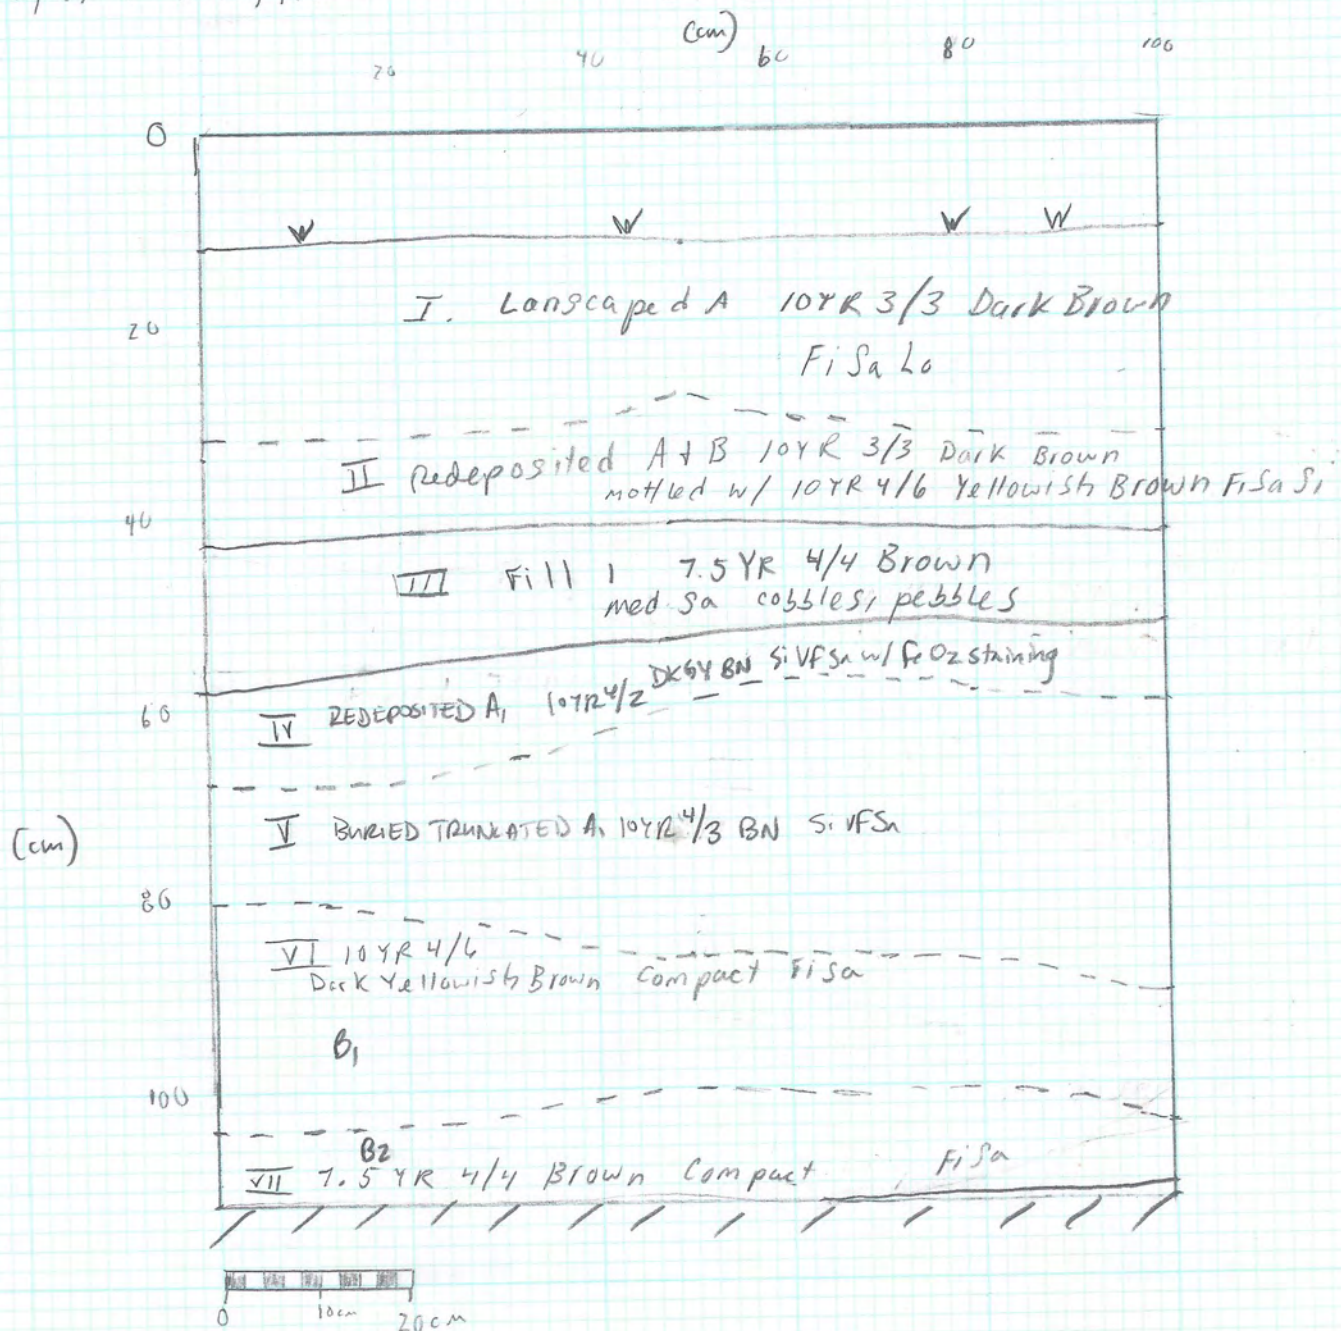 (cm)
20 40 60 80 100
0
W W W W
I. Lanscaped A 10YR 3/3 Dark Brown
20
Fi Sa Lo
II Redeposited A + B 10YR 3/3 Dark Brown
mottled w/ 10YR 4/6 Yellowish Brown FiSa Si
40
III Fill 1 7.5 YR 4/4 Brown
med sa cobbles, pebbles
IV REDEPOSITED A, 10YR 4/2 DKGY BN Si VF Sa w/ FeO2 staining
60
V BURIED TRUNCATED A, 10YR 4/3 BN Si VFSa
(cm)
80
VI 10 YR 4/6
Dark Yellowish Brown Compact Fi Sa
B1
100
B2
VII 7.5 YR 4/4 Brown Compact FiSa
0 10cm 20cm